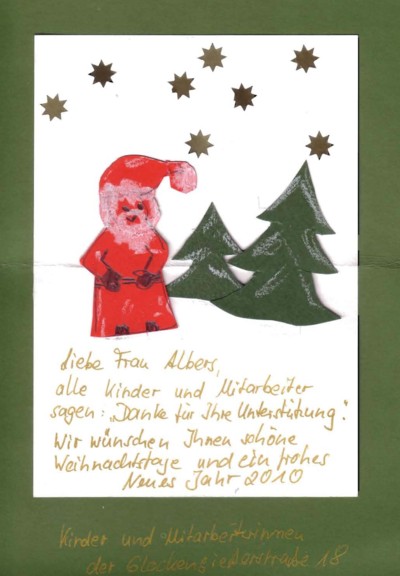 Liebe Frau Albers,
alle Kinder und Mitarbeiter
sagen: „Danke für Ihre Unterstützung".
Wir wünschen Ihnen schöne
Weihnachtstage und ein frohes
Neues Jahr, 2010
Kinder und Mitarbeiterinnen
der Glockengießerstraße 18